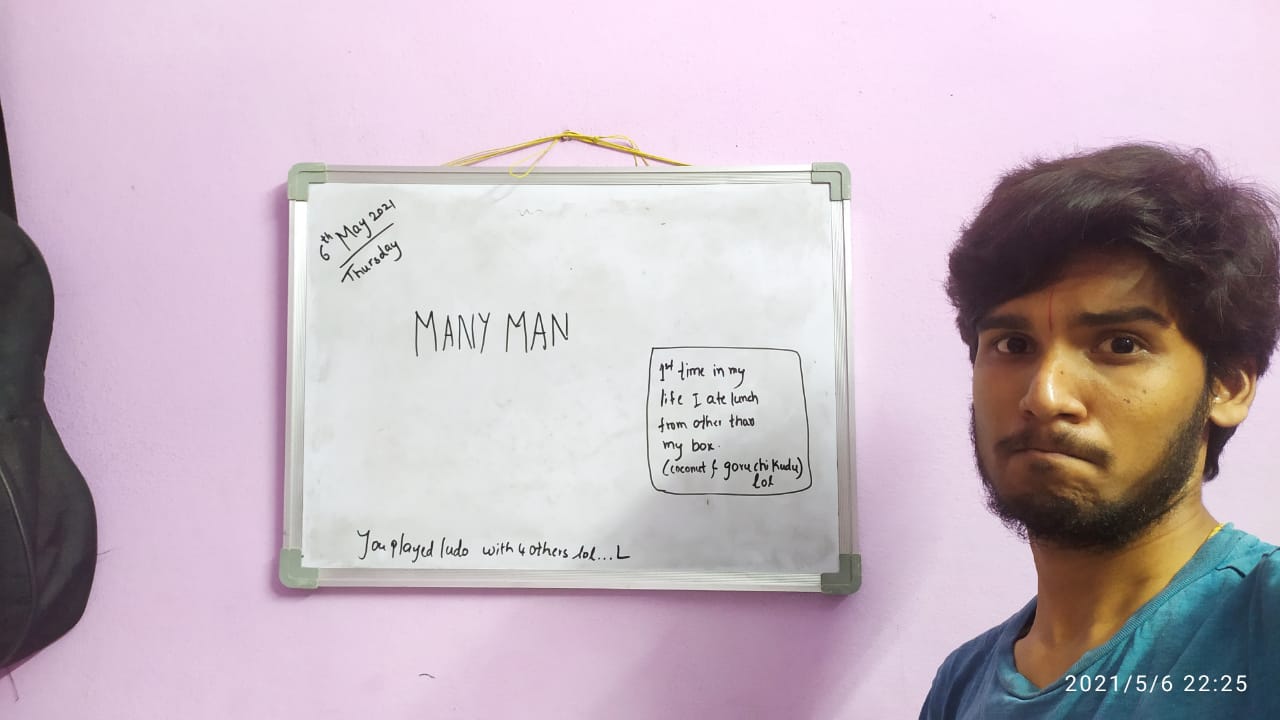 6th May 2021
Thursday
MANY MAN
1st time in my
life I ate lunch
from other than
my box.
(coconut & goruchikudu)
lol
You played ludo with 4 others lol...L
2021/5/6 22:25